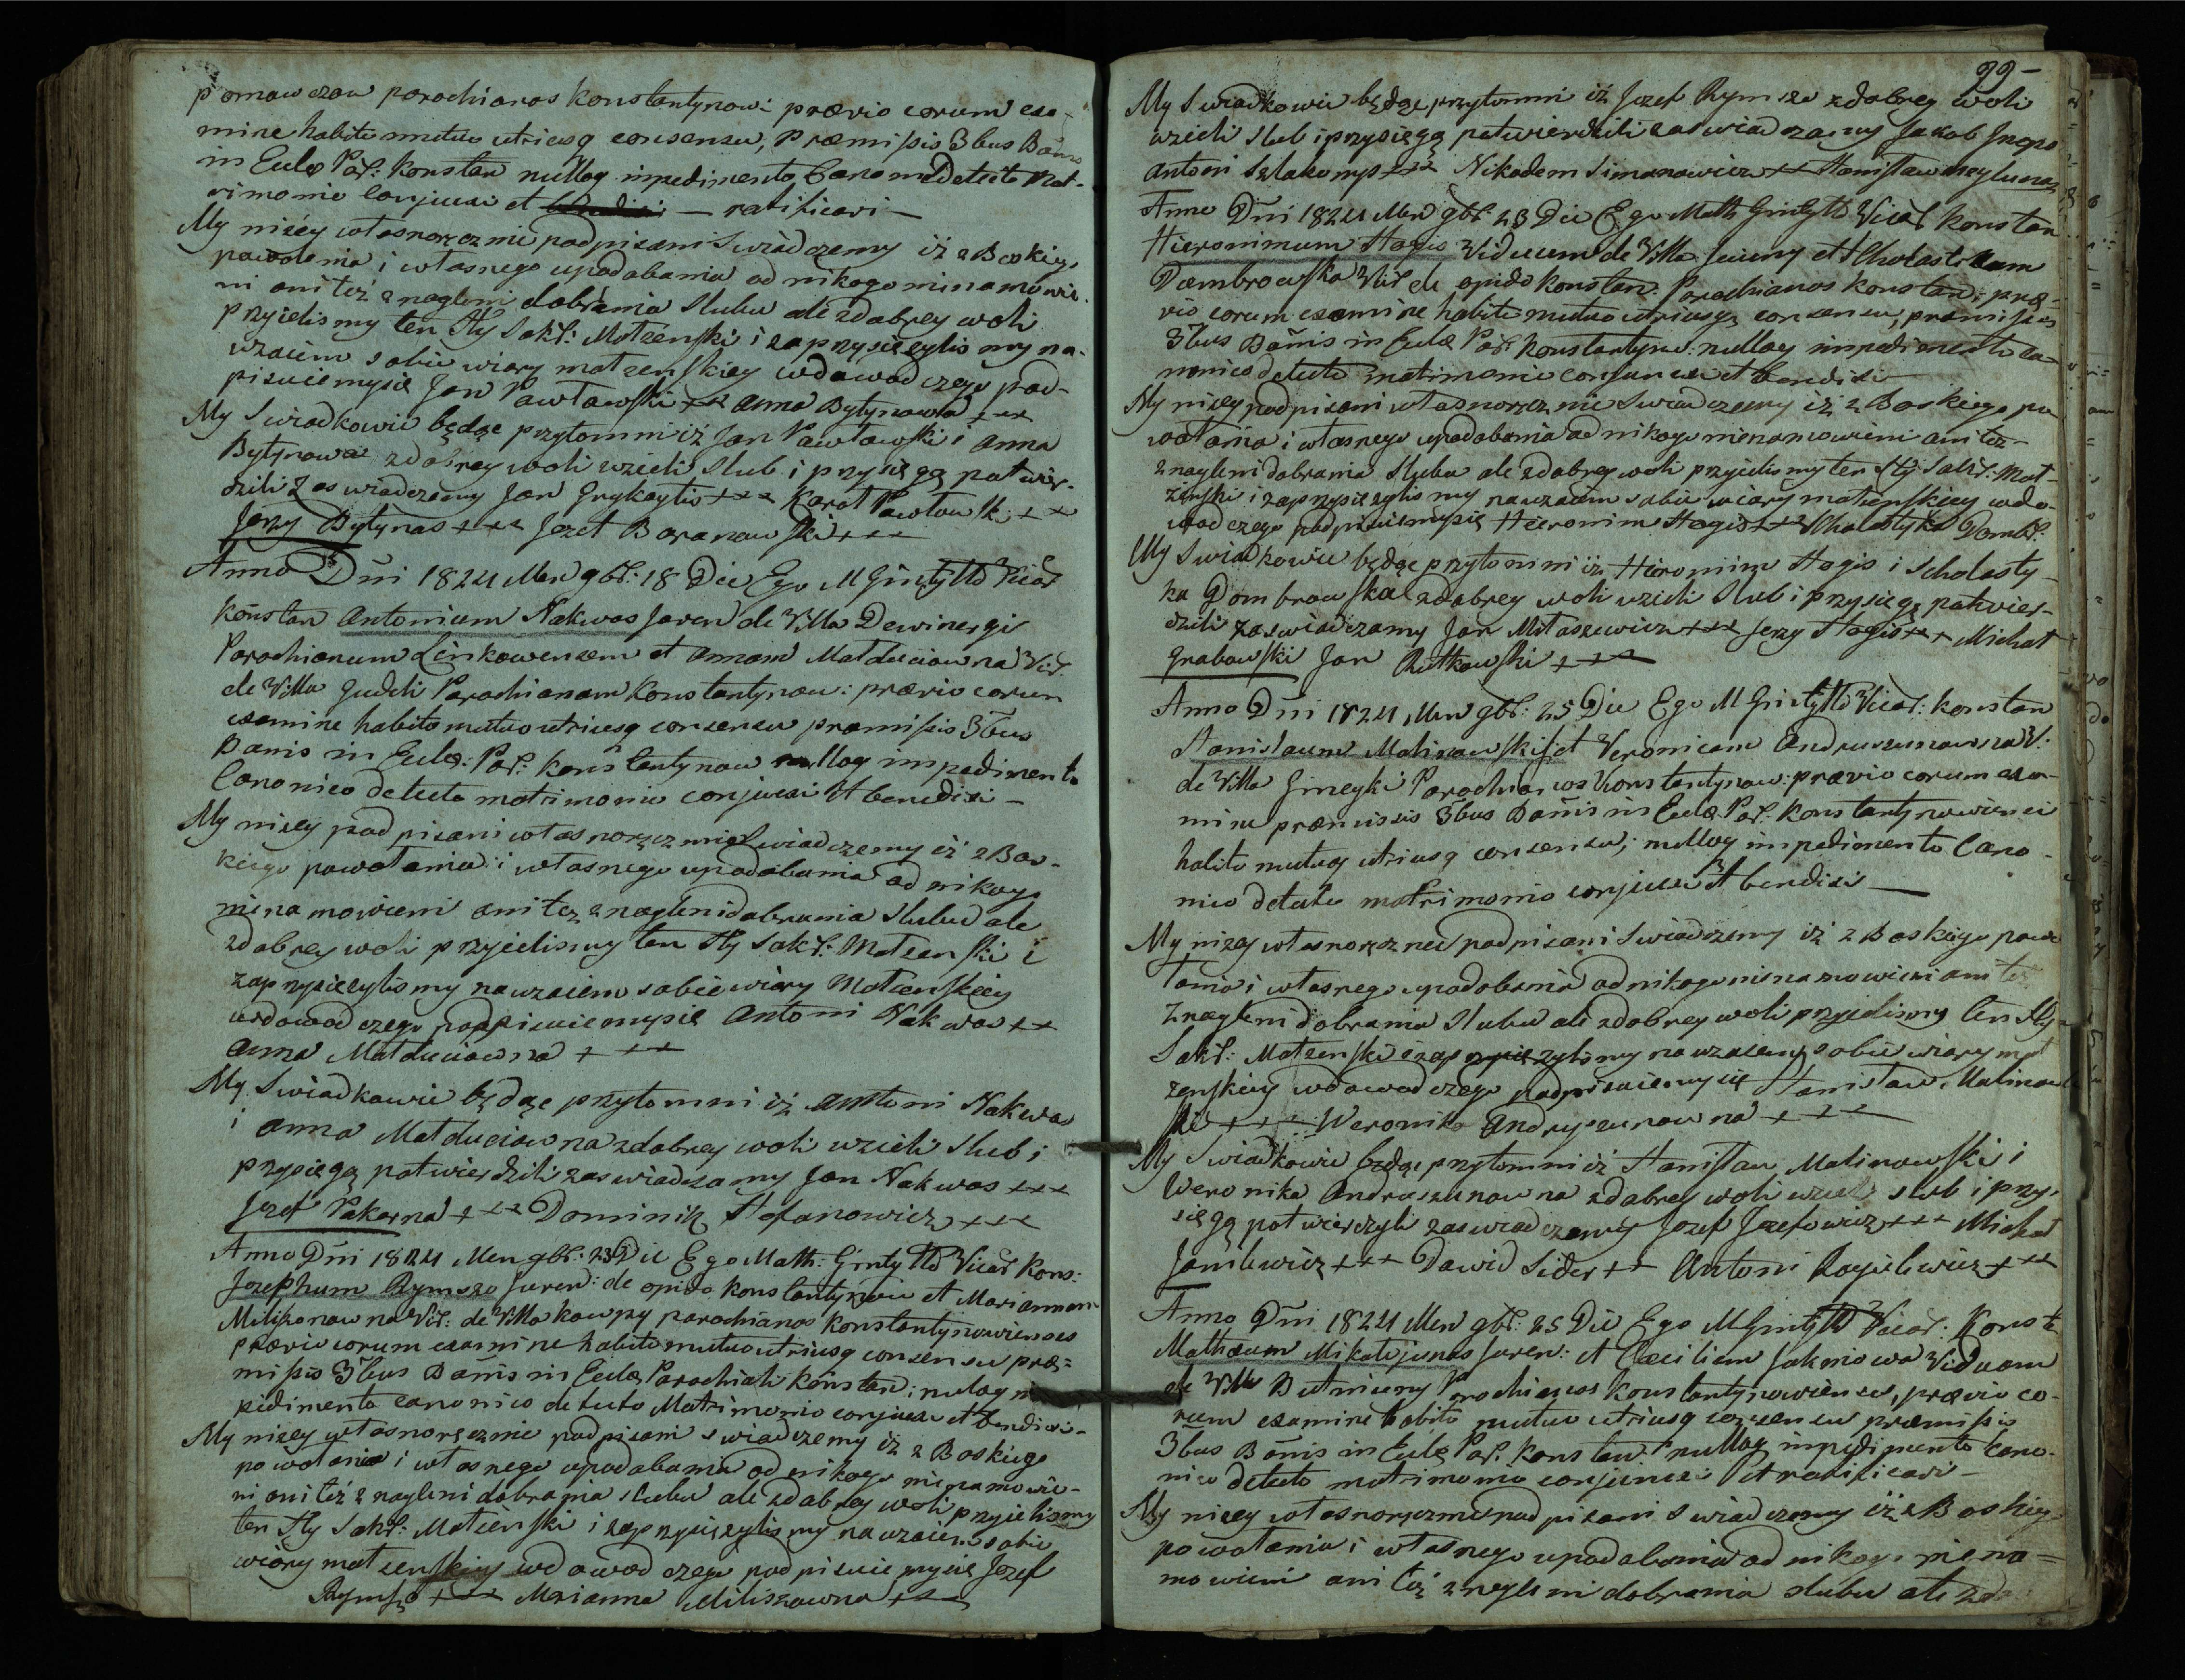 pomowczow parochianos konstantynow: prævio eorum exa-
mine habito mutuo utriusq consensu, Præmissis 3bus Banis
in Eccla Par: Konstan nullog impedimento Canonico detecto Mat-
rimonio conjunxi et — ratificavi —
My nizéy własnoręcznie podpisani Swiadczemy iż z Boskiego
powołania i własnego upodabania od nikogo nienamowie-
ni ani też z nagleni dobrania Slubu ale zdobrey woli
przyielismy ten Sty Sakr: Matżenski i zaprzysięzylismy na-
wzaiem sobie wiary matzenskiey wdowod czego pod-
pisuiemysię Jan Pawłowski +++ Anna Bytynowa +++
My Swiadkowie będąc przytomni iż Jan Pawłowski i Anna
Bytynowa zdobrey woli wzieli Slub i przysięgą potwier-
dzili Zaswiadczamy Jan Grykaytis +++ Karol Pawłowsk: ++
Jerzy Bytynas +++ Jozef Baranowski +++
Anno Dni 1824 Men 9br: 18 Die Ego M Gintyłło Vicar
Konstan Antonium Nakwas Juven de Villa Dewinergi
Parochianum Linkowensem et Annam Matduciowna Vir:
de Villa Gudeli Parochianam Konstantynow: prævio eorum
examine habito mutuo utriusq consensu præmissis 3bus
Banis in Eccla: Par: Konstantynow nullog impedimento
Canonico detecto matrimonio conjunxi et benedixi —
My nizey podpisani własnoręcznie Swiadczemy iż z Bos-
kiego powołania i własnego upodabania od nikogo
nienamowieni ani tez z nagleni dobrania Slubu ale
zdobrey woli przyielismy ten Sty Sakr: Matzenski i
zaprzysięzylismy nawzaiem sobie wiary Matzenskiey
wdowod czego podpisuiemysię Antoni Nakwas ++
Anna Matduciowna +++
My Swiadkowie będąc przytomni iż Antoni Nakwas
i Anna Matduciowna zdobrey woli wzieli Slub i
przysięgą potwierdzili zaswiadczamy Jan Nakwas +++
Jozef Pakarna +++ Dominik Stefanowicz +++
Anno Dni 1824 Men 9br: 23 Die Ego Math: Gintyłło Vicar Kons:
Josephum Rymszo Juven: de opido Konstantynow et Mariannam
Miliszowna Vir: de Villa kowpry parochianos Konstantynowienses
prævio eorum examine habito mutuo utriusq consensu præ-
missis 3bus Banis in Eccla Parochiali Konstan: nullog
pedimento canonico detecto Matrimonio conjunxi et bendixi -
My nizey własnoręcznie podpisani swiadczemy iż z Boskiego
powołania i własnego upodabania od nikogo nienamowie-
ni ani też z nagleni dobrania slubu ale zdobrey woli przyielismy
ten Sty Sakr: Matżenski i zaprzysięzylismy nawzaiem sobie
wiary matzenskiey wdowod czego podpisuiemysię Jozef
Rymszo +++ Marianna Miliszowna +++
99 -
My Swiadkowie będąc przytomni iż Jozef Rymsza zdobrey woli
wzieli slub i przysięgą potwierdzili zaswiadczamy Jakob
Antoni +++ Nikodem Simanowicz ++ Stanisław
Anno Dni 1824 Men 9br: 23 Die Ego Math Gintyłło Vicar Konstan
Hieronimum Stogis Viduum de Villa Juciuny et Scholasticam
Dombrowska Vir de opido Konstan: Parochianos Konstan: præ-
vio eorum examine habito mutuo utriusq consensu, præmissis
3bus Banis in Eccla Par Konstantynow: nullog impedimento ca-
nonico detecto matrimonio conjunxi et bendixi
My nizey podpisani własnoręcznie Swiadczemy iż z Boskiego po
wołania i własnego upodabania od nikogo nienamowieni ani też -
z nagleni dobrania Slubu ale zdobrey woli przyielismy ten Sty Sakr: Mat-
żenski i zaprzysięzylismy nawzaiem sobie wiary matzenskiey wdo-
wod czego podpisuiemysię Hieronim Stogis +++ Scholastyka Dombr:
My Swiadkowie będąc przytomni iż Hieronim Stogis i Scholasty-
ka Dombrowska zdobrey woli wzieli Slub i przysięgą potwier-
dzili zaswiadczamy Jan Mitaszewicz +++ Jerzy Stogis +++ Michał
Grabowski Jan Rutkowski +++
Anno Dni 1824 Men 9br: 25 Die Ego M Gintyłło Vicar: Konstan
Stanislaum Malinowski et Veronicam Andruszunowna V:
de Villa Gineyki Parochianos Konstantynow: prævio eorum exa-
mine præmissis 3bus Banis in Eccla Par: Konstantynowiensi
habito mutuoq utriusq consensu, nullog impedimento Cano-
nico detecto matrimonio conjunxi et bendixi —
My nizey własnoręcznie podpisani Swiadczemy iż z Boskiego powo
łania i własnego upodobania od nikogo nienamowieni ani też
z nagleni dobrania Slubu ale zdobrey woli przyielismy ten Sty
Sakr: Matzenski i zaprzysięzylismy nawzaiem sobie wiary mat
zenskiey wdowod czego podpisuiemysię Stanisław Malinow
ski +++ Weronika Andryszunowna +++
My Swiadkowie będąc przytomni iż Stanisław Malinowski i
Weronika Andruszunowna zdobrey woli wzieli slub i przy-
sięgą potwierdzyli zaswiadczamy Jozef Jozefowicz +++ Michał
+++ Dawid Sider ++ Antoni +++
Anno Dni 1824 Men 9br: 25 Die Ego M Gintyłło Vicar: Konst:
Mathæum Mikatajunas Juven: et Cæciliam Jakniowa Viduam
de Villa Butniuny Parochianos Konstantynowienses, prævio eo-
rum examine habito mutuo utriusq consensu præmissis
3bus Banis in Eccla Par. Konstan: nullog impedimento Cano-
nico detecto matrimonio conjunxi et ratificavi —
My nizey własnoręcznie podpisani Swiadczemy iż z Boskiego
powołania i własnego upodabania od nikogo niena=
mowieni ani też z nagleni dobrania slubu ale zdo